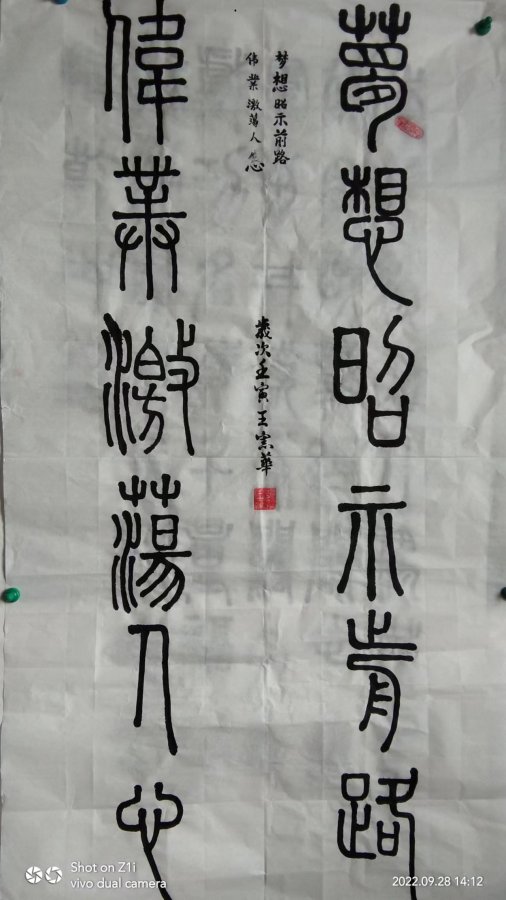 夢想昭示前路
偉業激蕩人心
梦想昭示前路
伟業激荡人心
歲次壬寅王宗華
Shot on Z1i
vivo dual camera
2022.09.28 14:12